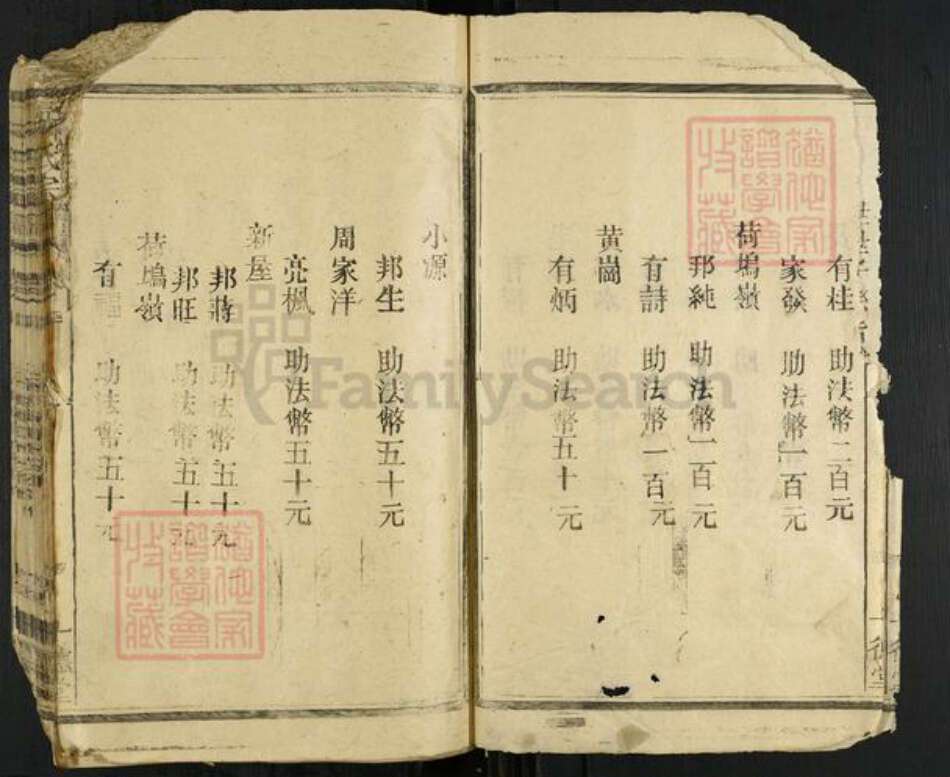 有桂　助法幣二百元
家發　助法幣一百元
荷塢嶺
邦純　助法幣一百元
有詩　助法幣一百元
黃崗
有炳　助法幣五十元
小源
邦生　助法幣五十元
周家洋
亮楓　助法幣五十元
新屋
邦蔣　助法幣五十元
邦旺　助法幣五十元
荷塢嶺
有福　助法幣五十元
譜學會
收藏
譜學會
收藏
FamilySearch